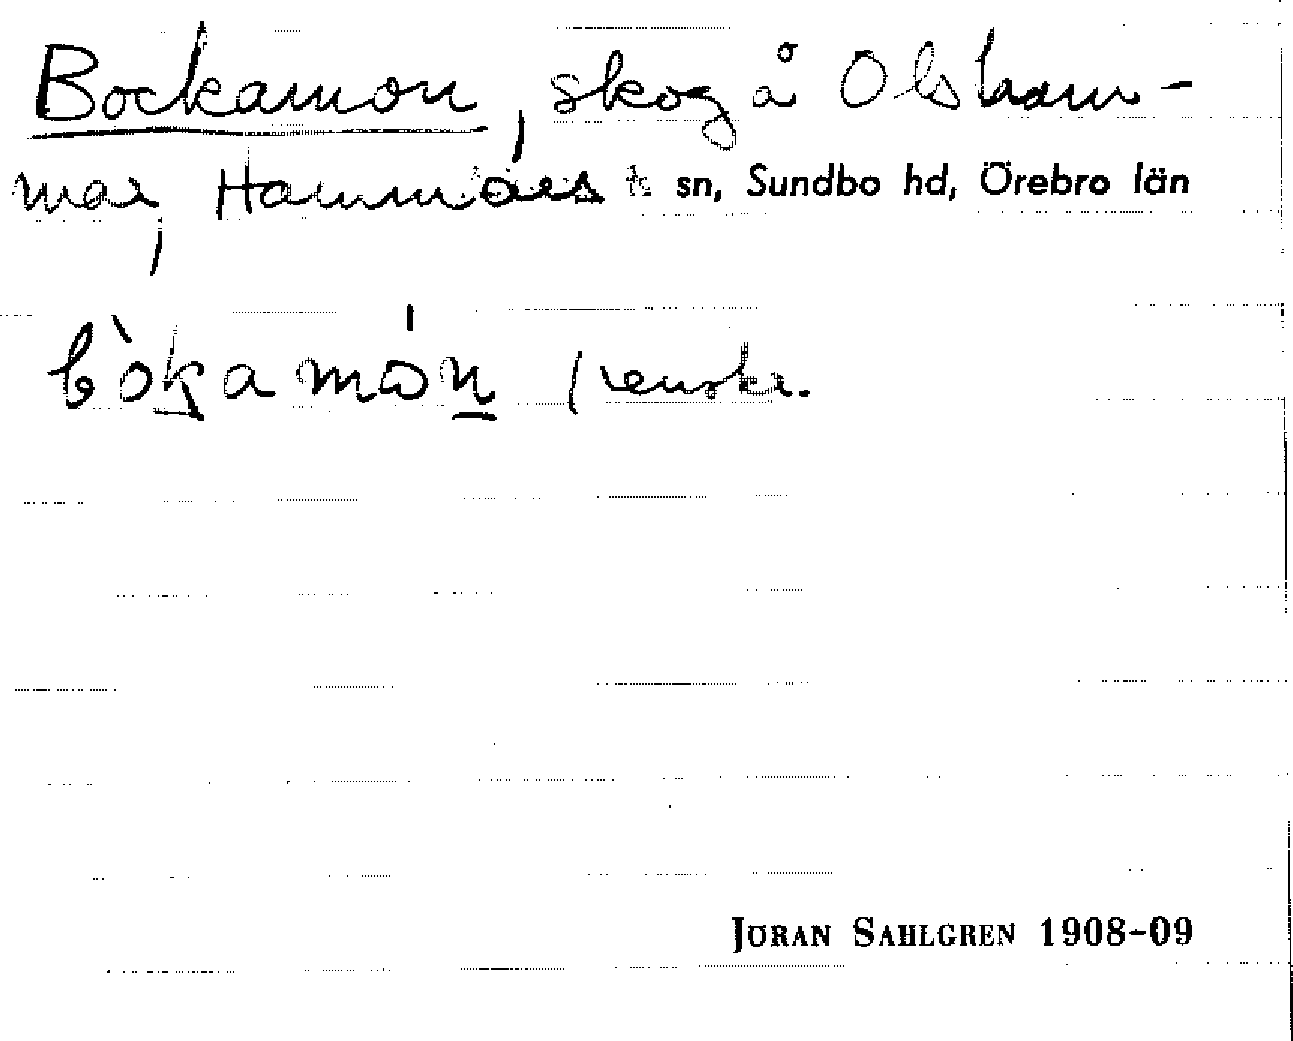 Bockamon, skog å Olsham-
mar, Hammars sn, Sundbo hd, Örebro län
bòkamón (renskr.
JÖRAN SAHLGREN 1908-09